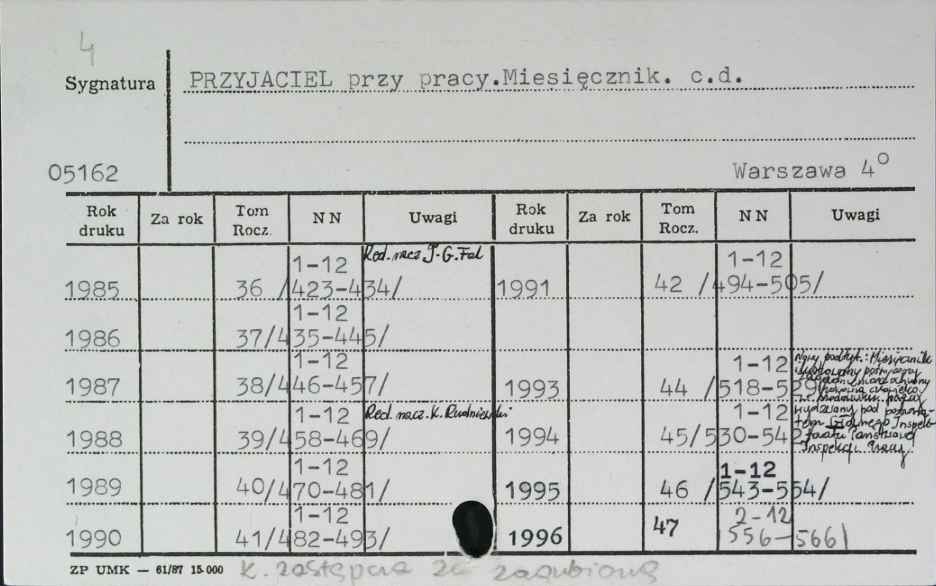 4
Sygnatura PRZYJACIEL przy pracy.Miesięcznik. c.d.
05162 Warszawa 4°
Rok druku Za rok Tom Rocz. NN Uwagi Rok druku Za rok Tom Rocz. NN Uwagi
1985 36 1-12 /423-434/ Red. nacz J. G. Fel 1991 42 1-12 /494-505/
1986 37 1-12 /435-445/
1987 38 1-12 /446-457/ 1993 44 1-12 /518-529 Nowy podtyt.: Miesięcznik ilustrowany
1988 39 1-12 /458-469/ Red. nacz. K. Rudniewski 1994 45 1-12 /530-542 wydawany pod Głównego Inspektoratu Państwowej Inspekcji Pracy
1989 40 1-12 /470-481/ 1995 46 1-12 /543-554/
1990 41 1-12 /482-493/ 1996 47 2-12 556-566/
ZP UMK — 61/87 15.000 K. zastępcza za zagubioną